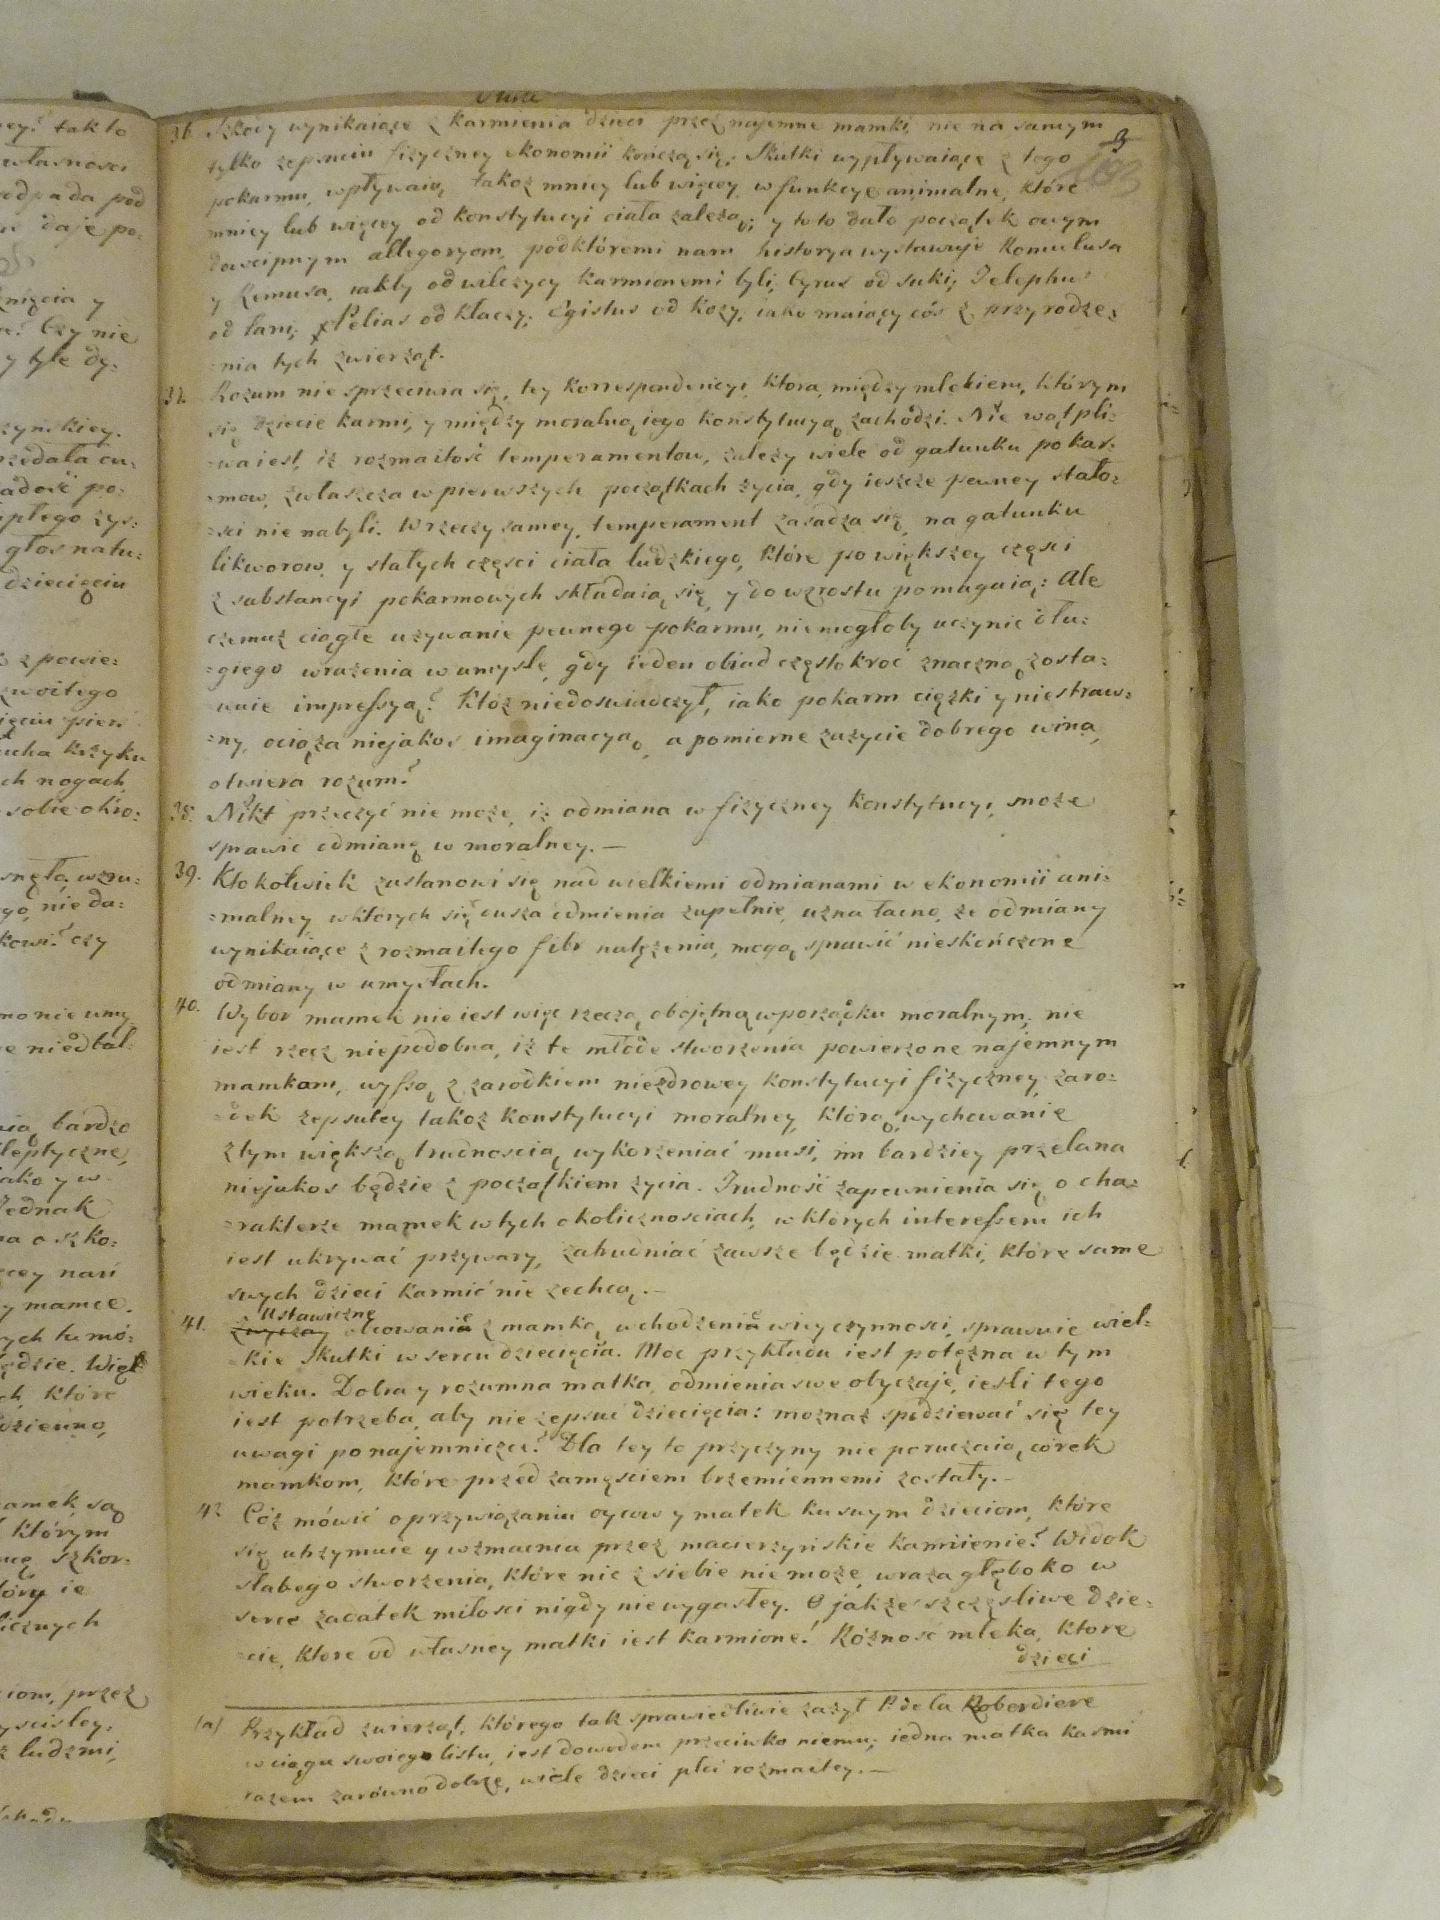 36. Szkody wynikaiące z karmienia dzieci przez najemne mamki, nie na samym
tylko zepsuciu fizyczney ekonomii kończą się; Skutki wypływaiące z tego
pokarmu, wpływaią także mniey lub więcey w funkcye animalne, które
mniey lub więcey od konstytucyi ciała zależą; y to to dało początek owym
dowcipnym allegoryom, pod któremi nam historya wystawuje Romulusa
y Remusa, iakby od wilczycy karmionemi byli, Cyrus od suki, Telephus
od łani, Pelias od kłaczy, Egistus od kozy, iako maiący cóś z przyrodze:
:nia tych zwierząt.
37. Rozum nie sprzeciwia się, tey korrespondencyi, ktora, między mlekiem, którym
się dziecie karmi, y między moralną iego konstytucyą zachodzi. Nie wątpli:
:wa iest, iż rozmaitość temperamentow, zależy wiele od gatunku pokar:
:mow, zwłaszcza w pierwszych początkach życia, gdy ieszcze pewney stało:
:sci nie nabyli. W rzeczy samey, temperament zasadza się, na gatunku
likworow, y stałych częsci ciała ludzkiego, które po większey częsci
z substancyi pokarmowych składaią się, y do wzrostu pomagaią: Ale
czemuż ciągłe używanie pewnego pokarmu, nie mogłoby uczynić dłu:
:giego wrażenia w umyśle, gdy ieden obiad częstokroć znaczną zosta:
:wuie impressyą? Któż niedoswiadczył, iako pokarm ciężki y niestraw:
:ny, ociąża niejakos imaginacyą, a pomierne zażycie dobrego wina,
otwiera rozum?
38. Nikt przeczyć nie może, iż odmiana w fizyczney konstytucyi, może
sprawić odmianę w moralney.—
39. Ktokolwiek zastanowi się nad wielkiemi odmianami w ekonomii ani:
:malney w ktorych się dusza odmienia zupełnie, uzna łacno, że odmiany
wynikaiące z rozmaitego fibr natężenia, mogą sprawić nieskończone
odmiany w umysłach.
40. Wybor mamek nie iest więc rzeczą obojętną w porządku moralnym; nie
iest rzecz niepodobna, iż te młode stworzenia powierzone najemnym
mamkom, wyssą z zarodkiem niezdrowey konstytucyi fizyczney, zaro:
:dek zepsutey takoż konstytucyi moralney, którą wychowanie
z tym większą trudnoscią wykorzeniać musi, im bardziey przelana
niejakos będzie z początkiem życia. Trudność zapewnienia się o cha:
:rakterze mamek w tych okolicznosciach, w których interessem ich
iest ukrywać przywary, zatrudniać zawsze będzie matki, które same
swych dzieci karmić nie zechcą.—
Ustawiczne
41. Zwyczay obcowanie z mamką, wchodzenie w iey czynności, sprawuie wiel:
:kie Skutki w sercu dziecięcia. Moc przykładu iest potężna w tym
wieku. Dobra y rozumna matka, odmienia swe obyczaje, iesli tego
iest potrzeba, aby nie zepsuć dziecięcia: możnaż spodziewać się tey
uwagi po najemniczce? Dla tey to przyczyny nie poruczaią córek
mamkom, które przed zamęsciem brzemiennemi zostały.—
42. Cóż mówić o przywiązaniu oycow y matek ku swym dzieciom, które
się utrzymuie y wzmacnia przez macierzyńskie karmienie? Widok
słabego stworzenia, które nic z siebie nie może, wraża głęboko w
serce zadatek miłosci nigdy nie wygasłey. O jakże szczęsliwe dzie:
:cie, ktore od własney matki iest karmione! Różność mleka, ktore
dzieci
(a) Przykład zwierząt, którego tak sprawiedliwie zażył P. de la Roberdiere
w ciągu swoiego listu, iest dowodem przeciwko niemu; iedna matka karmi
razem zarówno dobrze, wiele dzieci płci rozmaitey.—